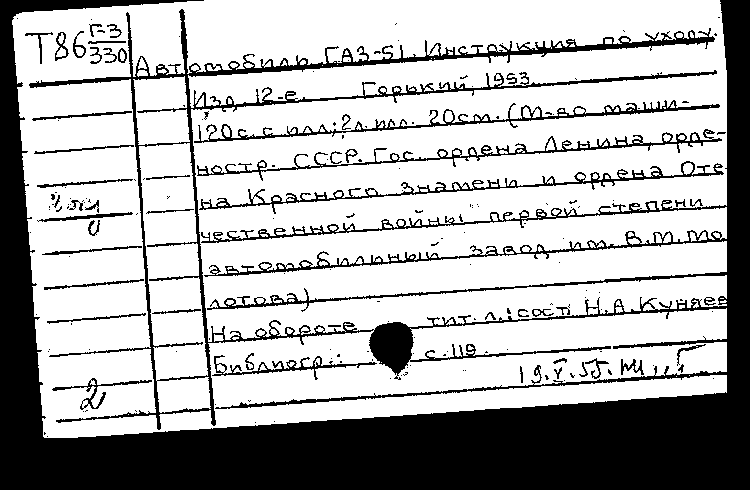 Т86 Г-3
330
Автомобиль ГАЗ-51. Инструкция по уходу.
Изд. 12-е. Горький, 1953.
120с. с илл; 2л. илл. 20см. (М-во маши-
ностр. СССР. Гос. ордена Ленина, орде-
на Красного знамени и ордена Оте
чественной войны первой степени
автомобильный завод им. В.М. Мо
лотова)
На обороте тит. л.: сост. Н.А. Куняев
Библиогр.: с. 119.
19.V.55.
2